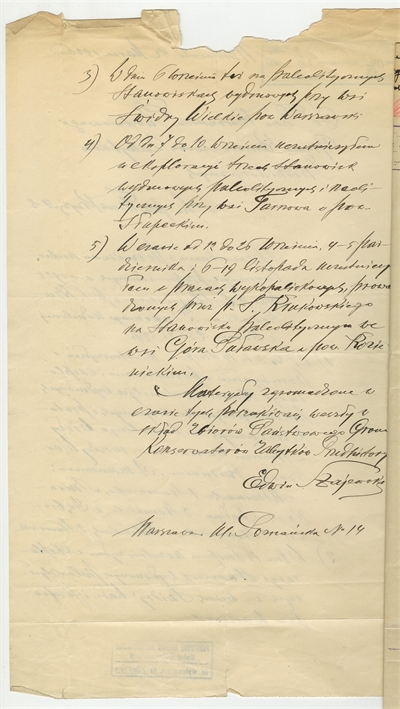 3) W dniu 6 września byłem na paleolitycznych
Stanowiskach wydmowych przy wsi
Świdry Wielkie pow. Warszawski
4) Od dn. 7 do 10. września uczestniczyłem
w eksploracji trzech Stanowisk
wydmowych paleolitycznych i neoli-
tycznych przy wsi Tarnowa w pow.
Słupeckim.
5) W czasie od 12 do 26 Września, 4-5 paź-
dziernika i 6-19 listopada uczestniczy-
łem w pracach wykopaliskowych, prowa-
dzonych przez p. S. Krukowskiego
na Stanowisku paleolitycznym we
wsi Góra Puławska w pow. Kozie-
nickim.
Materyały zgromadzone w
czasie tych poszukiwań weszły w
skład Zbiorów Państwowego Grona
Konserwatorów Zabytków Przedhistory
Edwin
Warszawa Ul. N 14